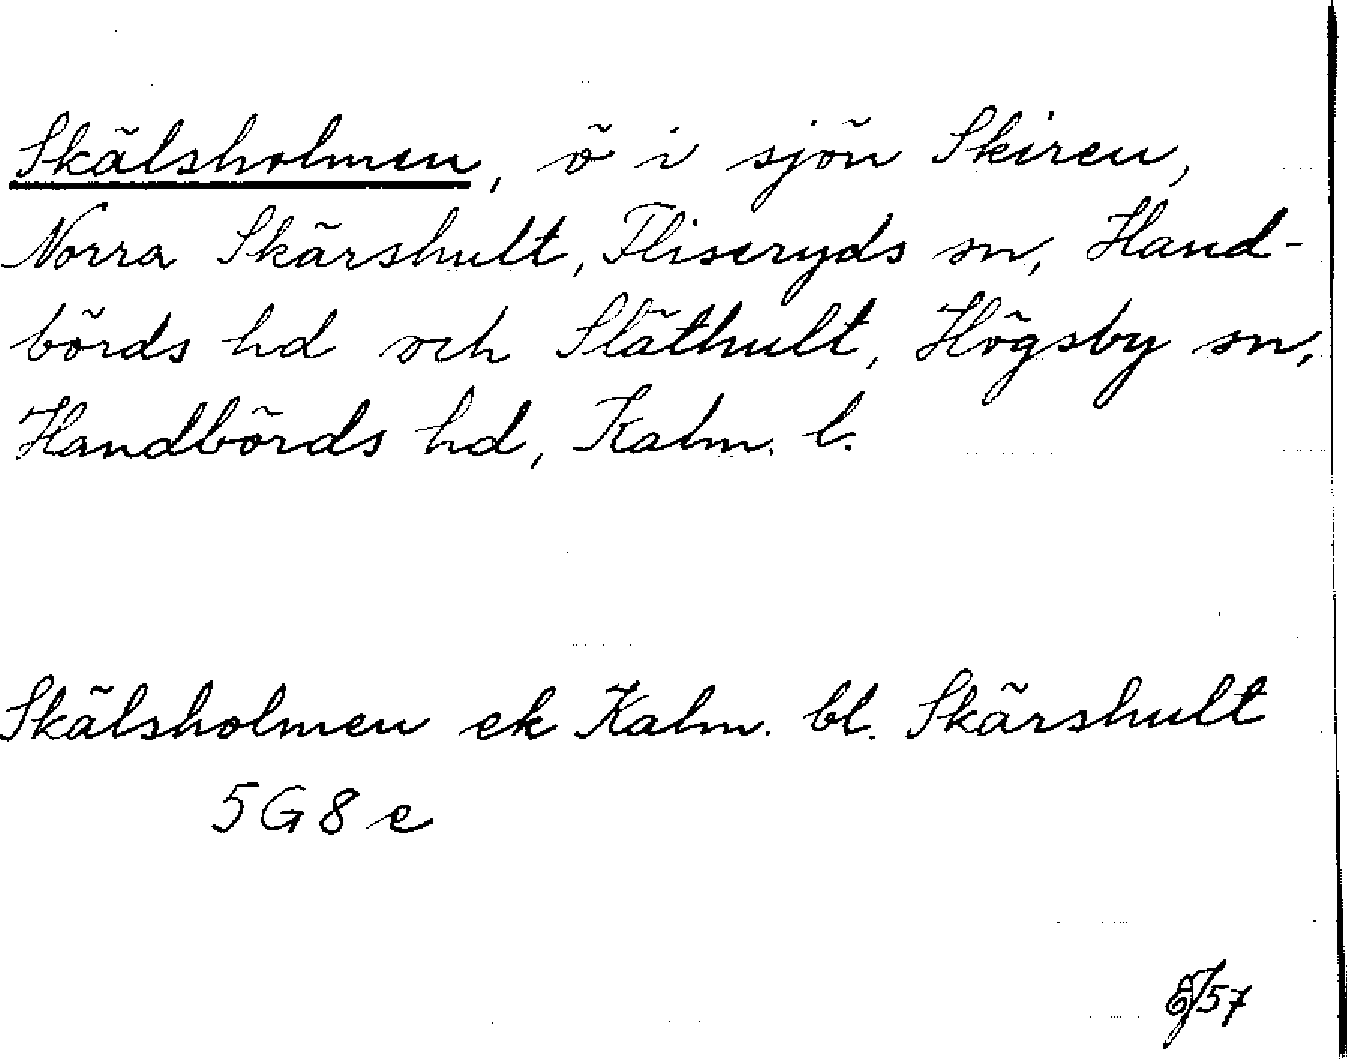 Skälsholmen, ö i sjön Skiren,
Norra Skärshult, Fliseryds sn, Hand-
börds hd och Släthult, Högsby sn,
Handbörds hd, Kalm. l.
Skälsholmen ek Kalm. bl. Skärshult
5G8e
/57